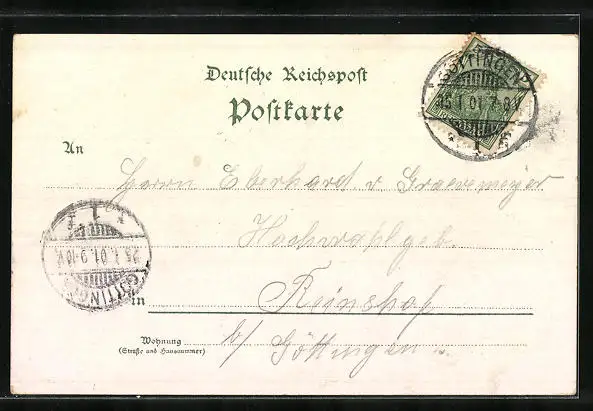 Deutsche Reichspost
Postkarte
GÖTTINGEN
25.1.01.7-8V.
1
An
Herrn Eberhard v. Graevemeyer
Hochwohlgeb.
1
25.1.01.9-10V.
GÖTTINGEN
in Reinshof
Wohnung b/ Göttingen
(Straße und Hausnummer)